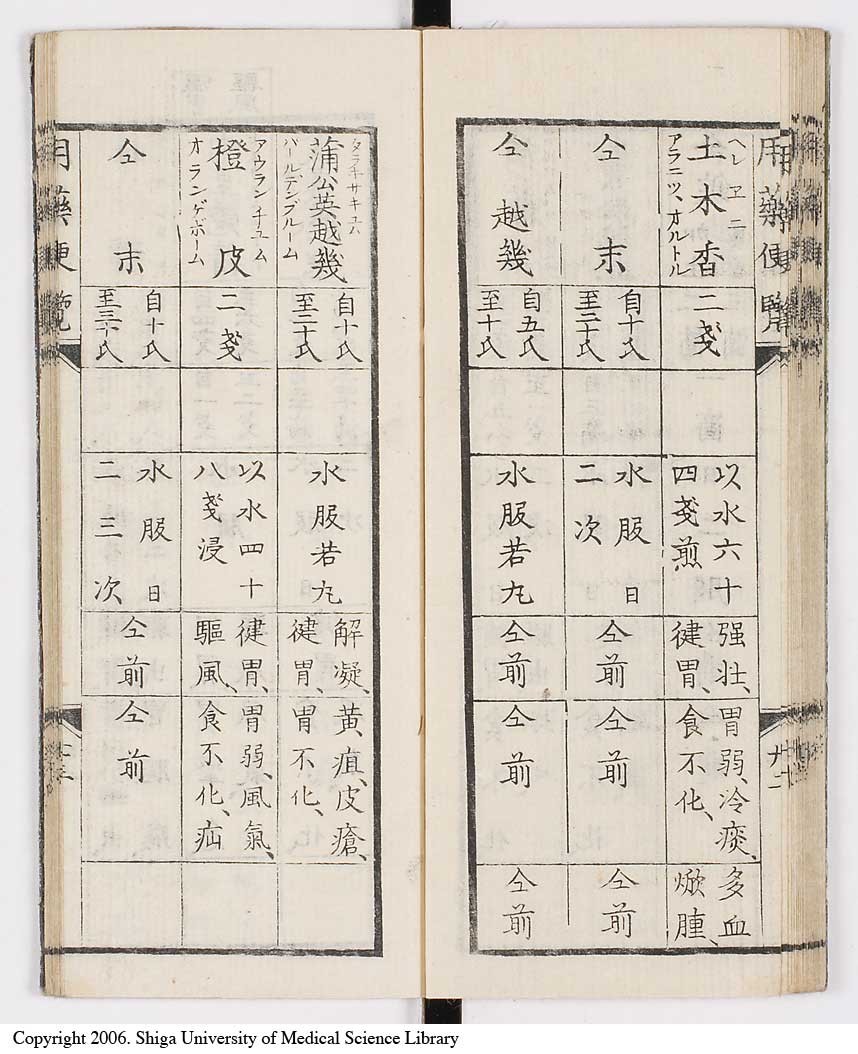 用藥便覽
ヘレヱニ
土木香
アラニツ、オルトル
二戔
以水六十
四戔煎
强壮、
健胃、
胃弱、冷痰、
食不化、
多血
焮腫、
仝末
自十氏
至二十氏
水服日
二次
仝前
仝前
仝前
仝越幾
自五氏
至十氏
水服若丸
仝前
仝前
仝前
タラキサキユハ
蒲公英越幾
パールデンブルーム
自十氏
至二十氏
水服若丸
解凝、
健胃、
黄疸、皮瘡、
胃不化、
アウランチユム
橙皮
オランゲボーム
二戔
以水四十
八戔浸
健胃、
驅風、
胃弱、風氣、
食不化、疝
仝末
自十氏
至三十氏
水服日
二三次、
仝前
仝前
用藥便覽
Copyright 2006. Shiga University of Medical Science Library